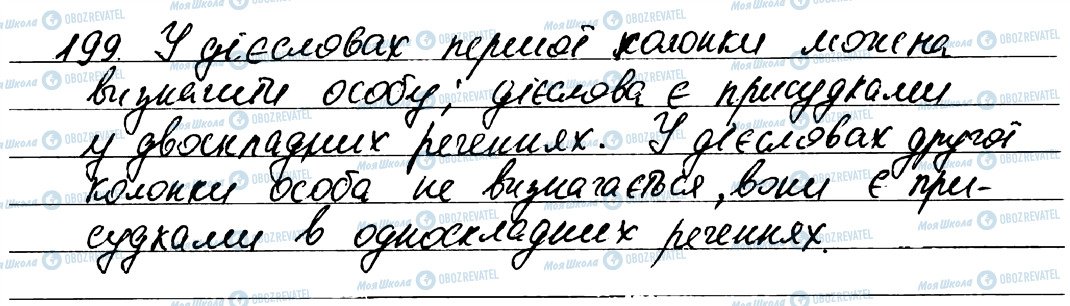 199. У дієсловах першої колонки можна
визначити особу; дієслова є присудками
у двоскладних реченнях. У дієсловах другої
колонки особа не визначається, вони є при-
судками в односкладних реченнях.